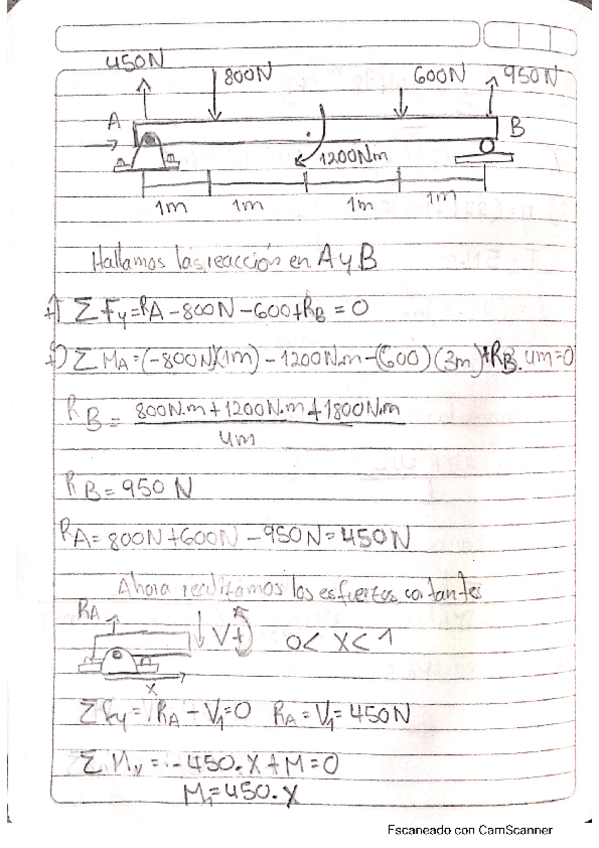 450N
800N
600N
950N
A
B
1200Nm
1m 1m 1m 1m
Hallamos las reacción en A y B
+↑ Σ Fy = RA - 800N - 600 + RB = 0
Σ MA = (-800N)(1m) - 1200N.m - (600)(3m) + RB. 4m = 0
RB = 800N.m + 1200N.m + 1800N.m
4m
RB = 950 N
RA = 800N + 600N - 950N = 450N
Ahora realizamos los esfuertos cortantes
RA
V
0 < X < 1
X
Σ Fy = RA - V1 = 0 RA = V1 = 450N
Σ Mx = -450.X + M = 0
M1 = 450.X
Escaneado con CamScanner